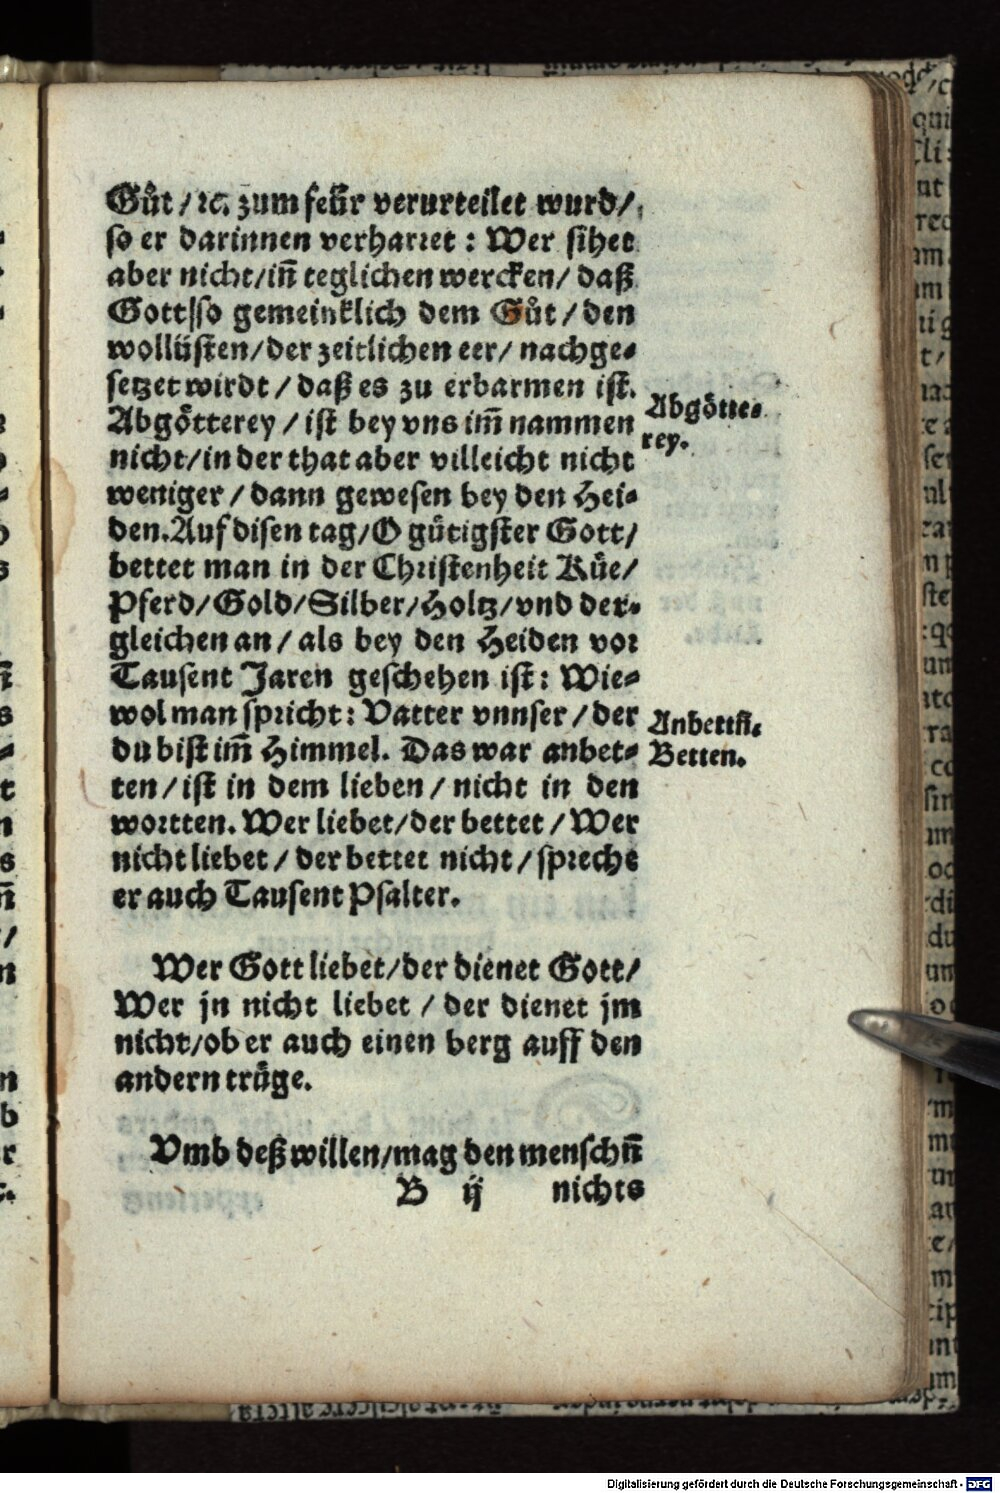 Gůt / ꝛc. zum feür verurteilet wurd /
so er darinnen verharret : Wer sihet
aber nicht / iñ teglichen wercken / daß
Gott / so gemeinklich dem Gůt / den
wollüsten / der zeitlichen eer / nachge-
setzet wirdt / daß es zu erbarmen ist.
Abgötterey / ist bey vns im̃ nammen
nicht / in der that aber villeicht nicht
weniger / dann gewesen bey den Hei-
den. Auf disen tag / O gütigster Gott /
bettet man in der Christenheit Küe /
Pferd / Gold / Silber / Holtz / vnd der-
gleichen an / als bey den Heiden vor
Tausent Jaren geschehen ist : Wie-
wol man spricht : Vatter vnnser / der
du bist im̃ Himmel. Das war anbet-
ten / ist in dem lieben / nicht in den
wortten. Wer liebet / der bettet / Wer
nicht liebet / der bettet nicht / spreche
er auch Tausent Psalter.
Abgötte-
rey.
Anbettñ.
Betten.
Wer Gott liebet / der dienet Gott /
Wer jn nicht liebet / der dienet jm
nicht / ob er auch einen berg auff den
andern trüge.
Vmb deß willen / mag den menschñ
B ij nichts
Digitalisierung gefördert durch die Deutsche Forschungsgemeinschaft - DFG